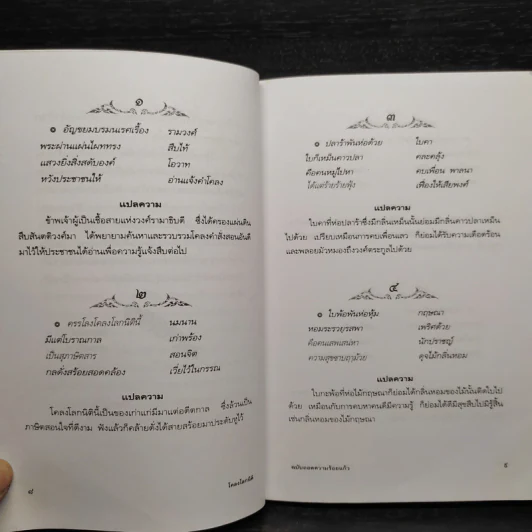 ๑
๏ อัญขยมบรมนเรศเรื้อง รามวงศ์
พระผ่านแผ่นไผททรง สืบไท้
แสวงยิ่งสิ่งสดับองค์ โอวาท
หวังประชาชนให้ อ่านแจ้งคำโคลง
แปลความ
ข้าพเจ้าผู้เป็นเชื้อสายแห่งวงศ์รามาธิบดี ซึ่งได้ครองแผ่นดิน
สืบสันตติวงศ์มา ได้พยายามค้นหาและรวบรวมโคลงคำสั่งสอนอันดี
มาไว้ให้ประชาชนได้อ่านเพื่อความรู้แจ้งสืบต่อไป
๒
๏ ครรโลงโคลงโลกนิตินี้ นมนาน
มีแต่โบราณกาล เก่าพร้อง
เป็นสุภาษิตสาร สอนจิต
กลดั่งสร้อยสอดคล้อง เวี่ยไว้ในกรรณ
แปลความ
โคลงโลกนิตินี้เป็นของเก่าแก่มีมาแต่อดีตกาล ซึ่งล้วนเป็น
ภาษิตสอนใจที่ดีงาม ฟังแล้วก็คล้ายดั่งได้สายสร้อยมาประดับหูไว้
๘ โคลงโลกนิติ
๓
๏ ปลาร้าพันห่อด้วย ใบคา
ใบก็เหม็นคาวปลา คละคลุ้ง
คือคนหมู่ไปหา คบเพื่อน พาลนา
ได้แต่ร้ายร้ายฟุ้ง เฟื่องให้เสียพงศ์
แปลความ
ใบคาที่ห่อปลาร้าซึ่งมีกลิ่นเหม็นนั้นย่อมมีกลิ่นคาวปลาเหม็น
ไปด้วย เปรียบเหมือนการคบเพื่อนเลว ก็ย่อมได้รับความเดือดร้อน
และพลอยมัวหมองถึงวงศ์ตระกูลไปด้วย
๔
๏ ใบพ้อพันห่อหุ้ม กฤษณา
หอมระรวยรสพา เพริศด้วย
คือคนเสพเสน่หา นักปราชญ์
ความสุขซาบฤๅม้วย ดุจไม้กลิ่นหอม
แปลความ
ใบกะพ้อที่ห่อไม้กฤษณาก็ย่อมได้กลิ่นหอมของไม้นั้นติดไปไป
ด้วย เหมือนกับการคบหาคนดีมีความรู้ ก็ย่อมได้ดีมีสุขสืบไปมิรู้สิ้น
เช่นกลิ่นหอมของไม้กฤษณา
ฉบับถอดความร้อยแก้ว ๙